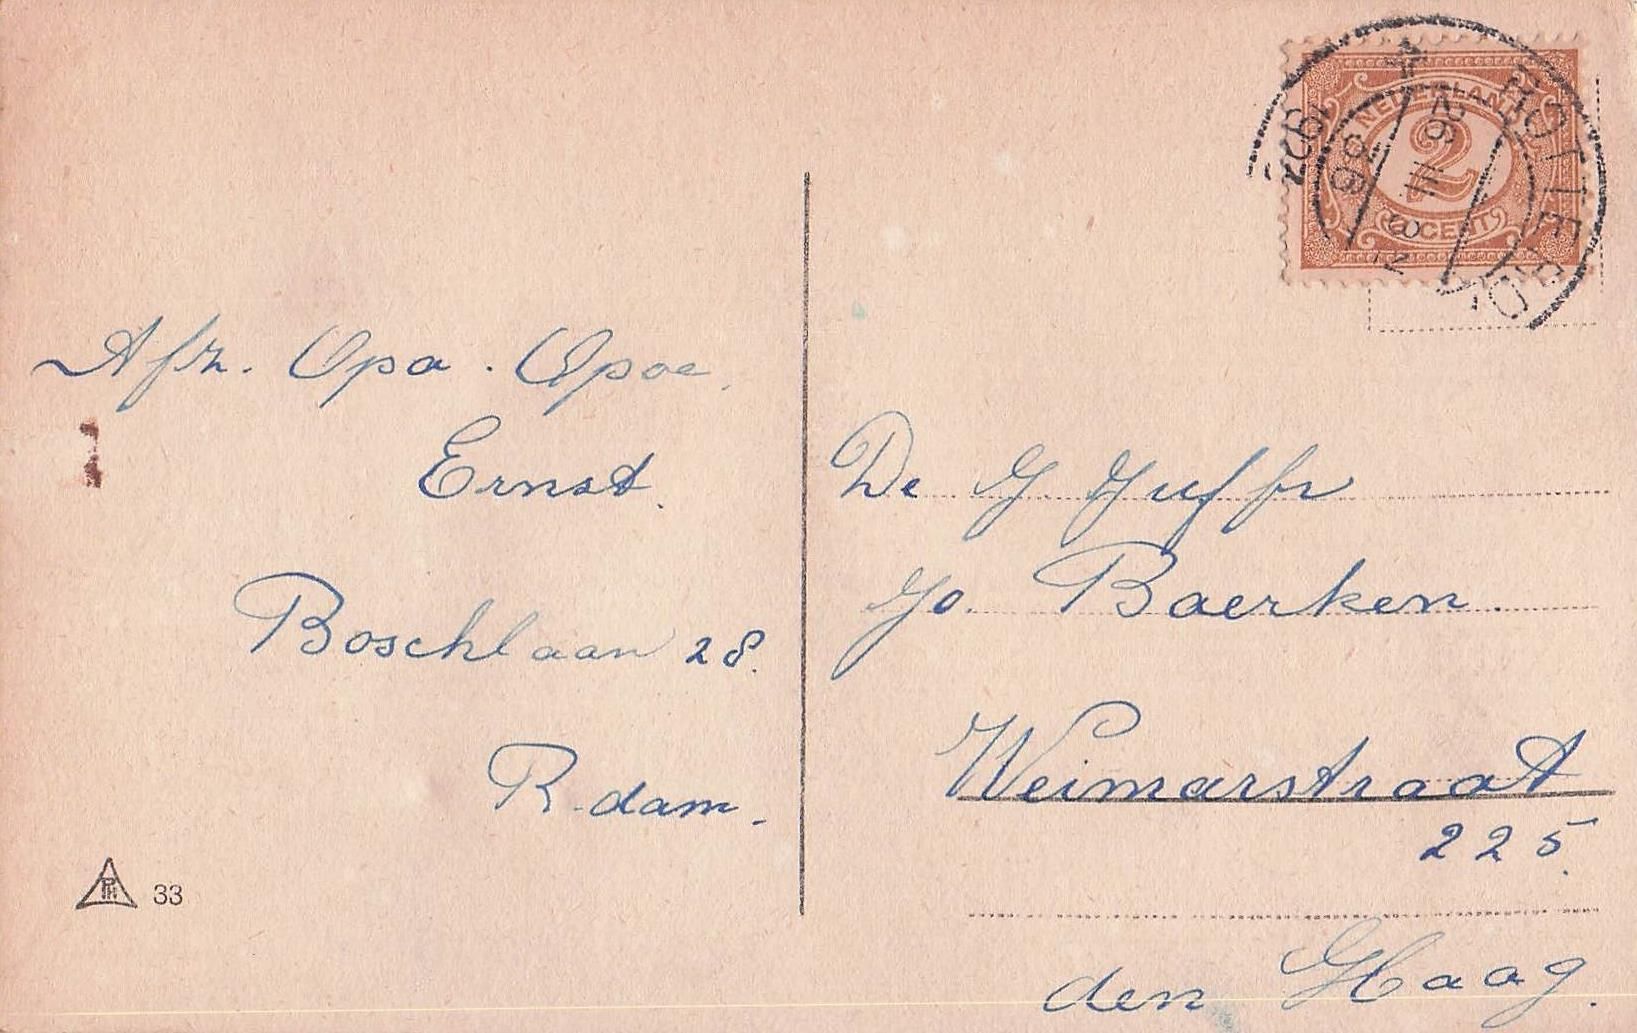 Afz. Opa. Opoe.
Ernst.
Boschlaan 28.
R.dam.
33
NEDERLAND
2
CENT
ROTTERD
De G. Juffr
Jo. Baerken.
Weimarstraat
225.
den Haag.